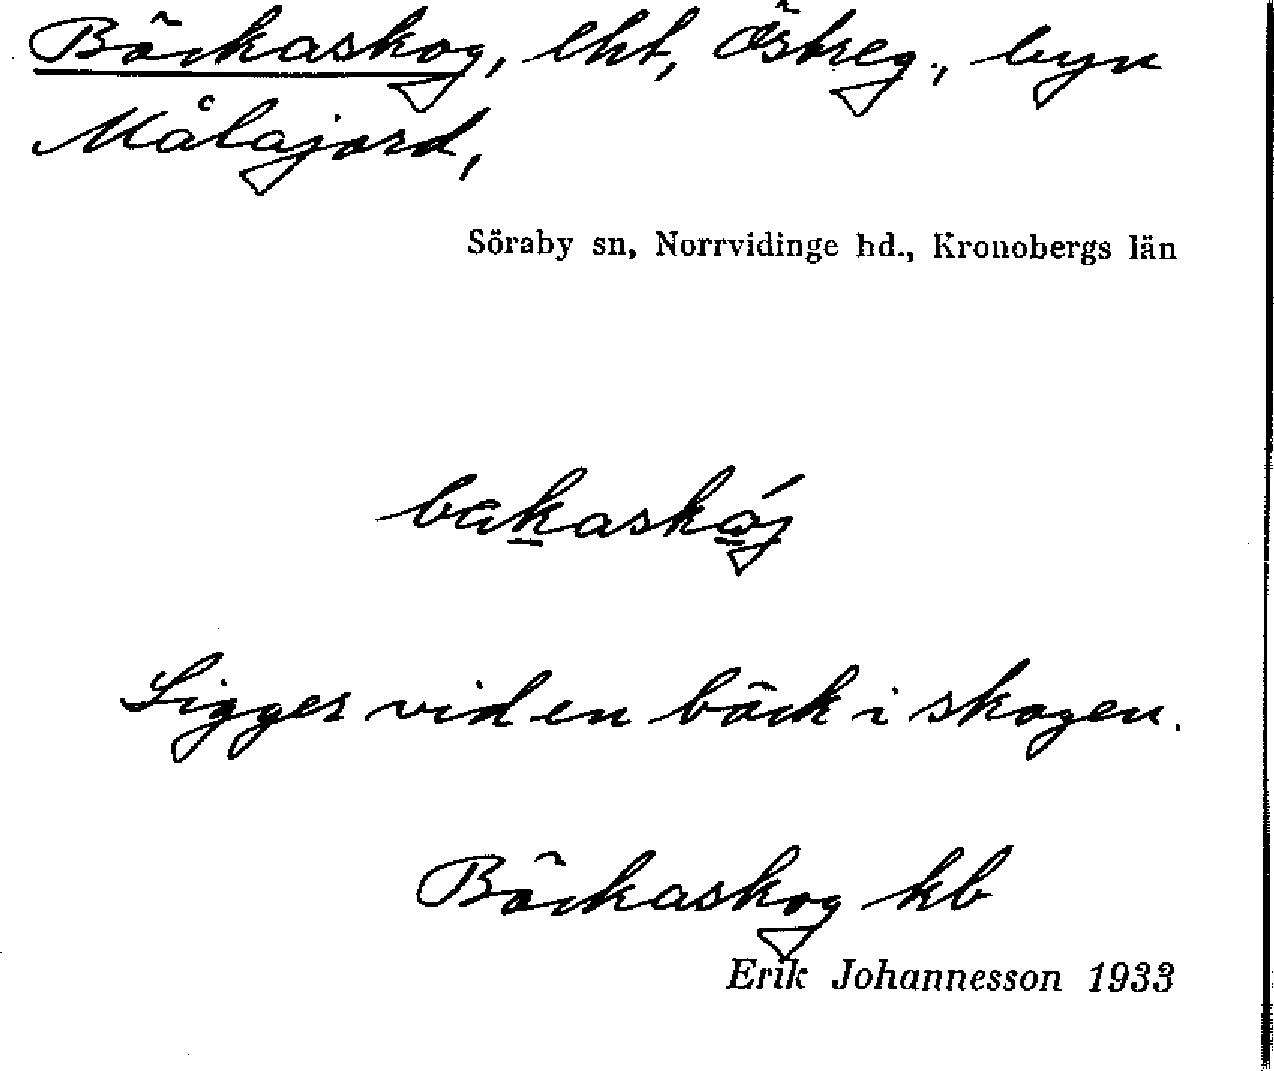 Bäckaskog, lht, Östreg., byn
Målajord,
Söraby sn, Norrvidinge hd., Kronobergs län
Ligger vid en bäck i skogen.
Bäckaskog kb
Erik Johannesson 1933